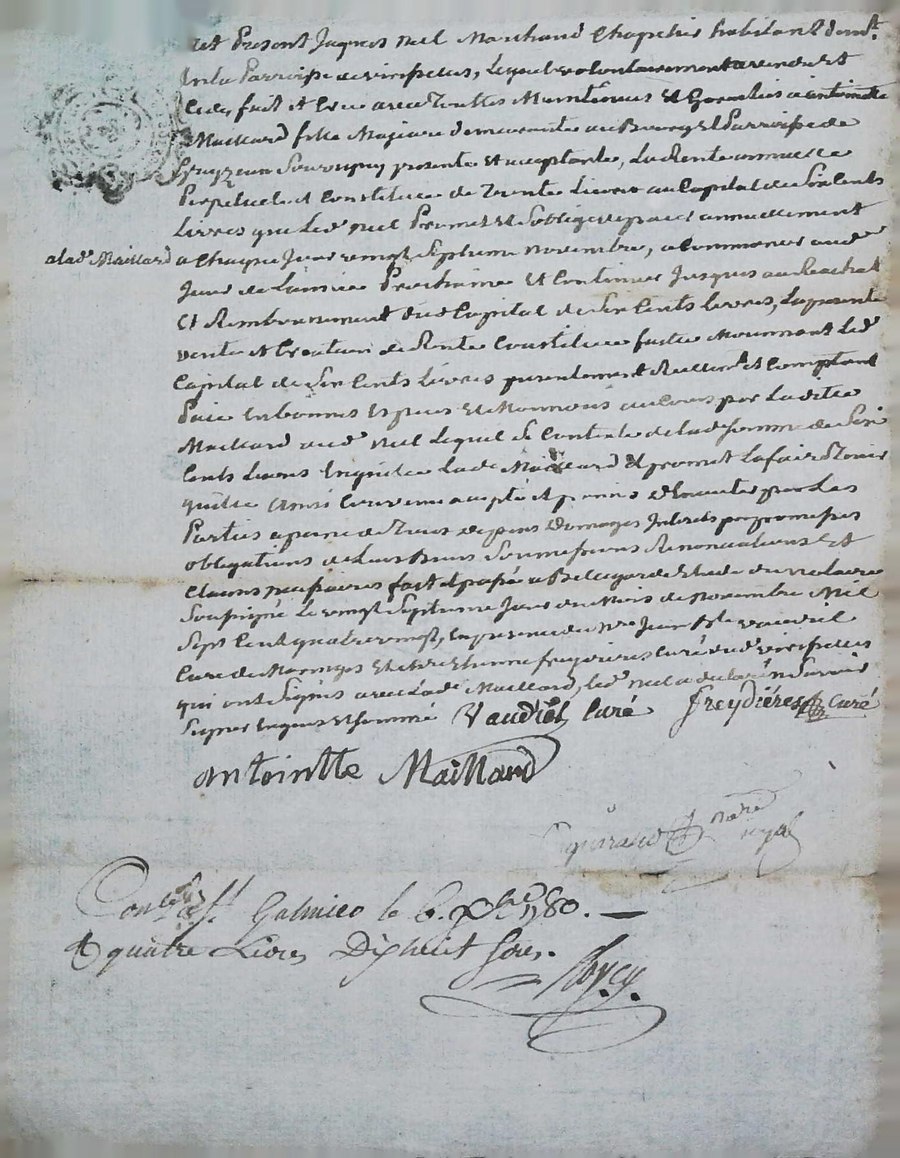 est Present Jaques nul Marchand Chapelier habitant demt.
En la Parroisse de virisselles, Lequel volontairement a vendu et
Cede, fait et Cree avec Toutes Maintenues et Garanties a antoinette
Maillard fille Majeure demeurante au Bourg et Parroisse de
presente et acceptante, La Rente annuelle
Perpetuele et Constituee de Trente Livres au Capital de Six Cents
Livres que Led. nul Promet et s'oblige de paier annuellement
a lad. Maillard a Chaque Jour vingt Septieme novembre, a Commencer aud.
Jour de Lannée Prochaine Et Continuer Jusques au Rachat
Et Remboursement dud Capital de Six Cents Livres, La presente
vente et Creation de Rente Constituee faite Moiennant Led.
Capital de Six Cents Livres presentement Reellemt. et Comptant
Paié En bonnes Especes et Monnoies au Cours par Ladite
Maillard aud. nul Lequel Se Contente de lad. Somme de Six
Cents Livres En quitte Lad. Maillard Et promet La faire Tenir
quitte ainsi Convenu accepté et promis Executer par Les
Parties a peine de Tous depens Domages Interets par promesses
obligations de Leurs Biens Soumissions Renonciations Et
Clauses necessaires fait et passé a Bellegarde Etude du notaire
Soussigné Le vingt Septieme Jour du Mois de Novembre Mil
Sept Cent quatre vingt, En presence de Mre. Jean vaudriel
Curé de Maringes Et de Mre Etienne freydieres Curé dud virisselles
qui ont Signés avec Lad. Maillard, Led. nul a declaré ne Savoir
Signer Enquis Et Sommé Vaudriel Curé Freydières Curé
antoinette Maillard
nore royal
Conlé a St. Galmier le 6. Xbre 1780.
R quatre Livres Dixhuit Sous.